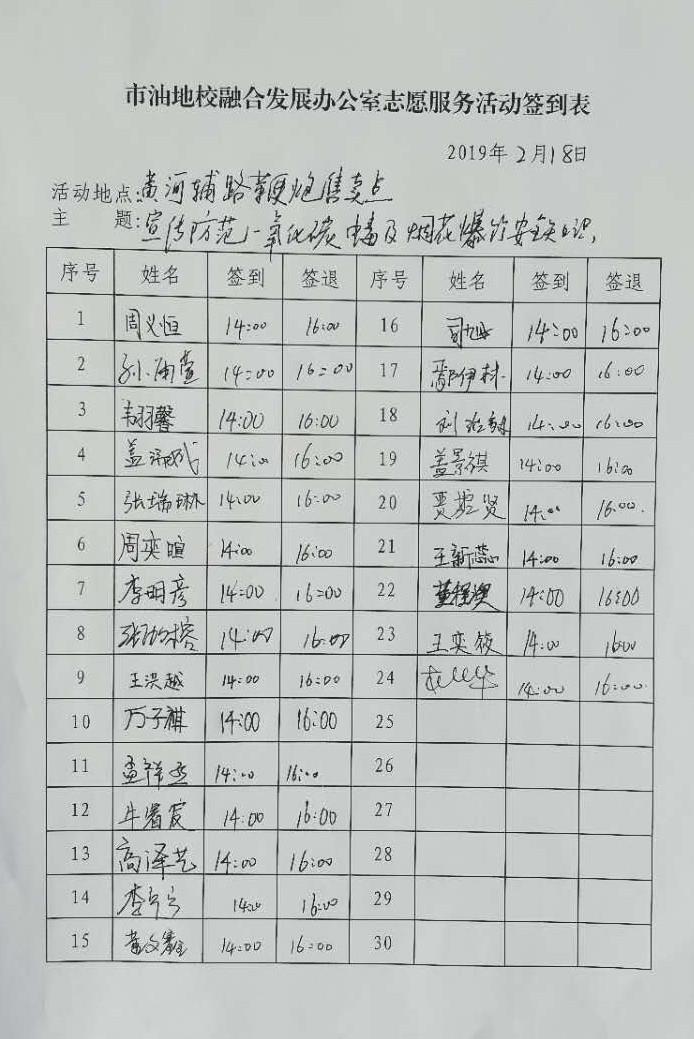 市油地校融合发展办公室志愿服务活动签到表
2019年2月18日
活动地点:黄河辅路鞭炮售卖点
主 题:宣传防范一氧化碳中毒及烟花爆竹安全知识.
序号 姓名 签到 签退 序号 姓名 签到 签退
1 周义恒 14:00 16:00 16 14:00 16:00
2 孙雨萱 14:00 16:00 17 鄢伊林 14:00 16:00
3 韦羽馨 14:00 16:00 18 14:00 16:00
4 盖 14:00 16:00 19 盖景祺 14:00 16:00
5 张瑞琳 14:00 16:00 20 贾 贤 14:00 16:00.
6 周奕暄 14:00 16:00 21 王新蕊 14:00 16:00
7 李明彦 14:00 16:00 22 董程澳 14:00 16:00
8 张 榕 14:00 16:00 23 王奕筱 14:00 16:00
9 王洪越 14:00 16:00 24 14:00 16:00
10 万子祺 14:00 16:00 25
11 孟祥 14:00 16:00 26
12 牛 14:00 16:00 27
13 高泽艺 14:00 16:00 28
14 李 14:00 16:00 29
15 黄文 14:00 16:00 30